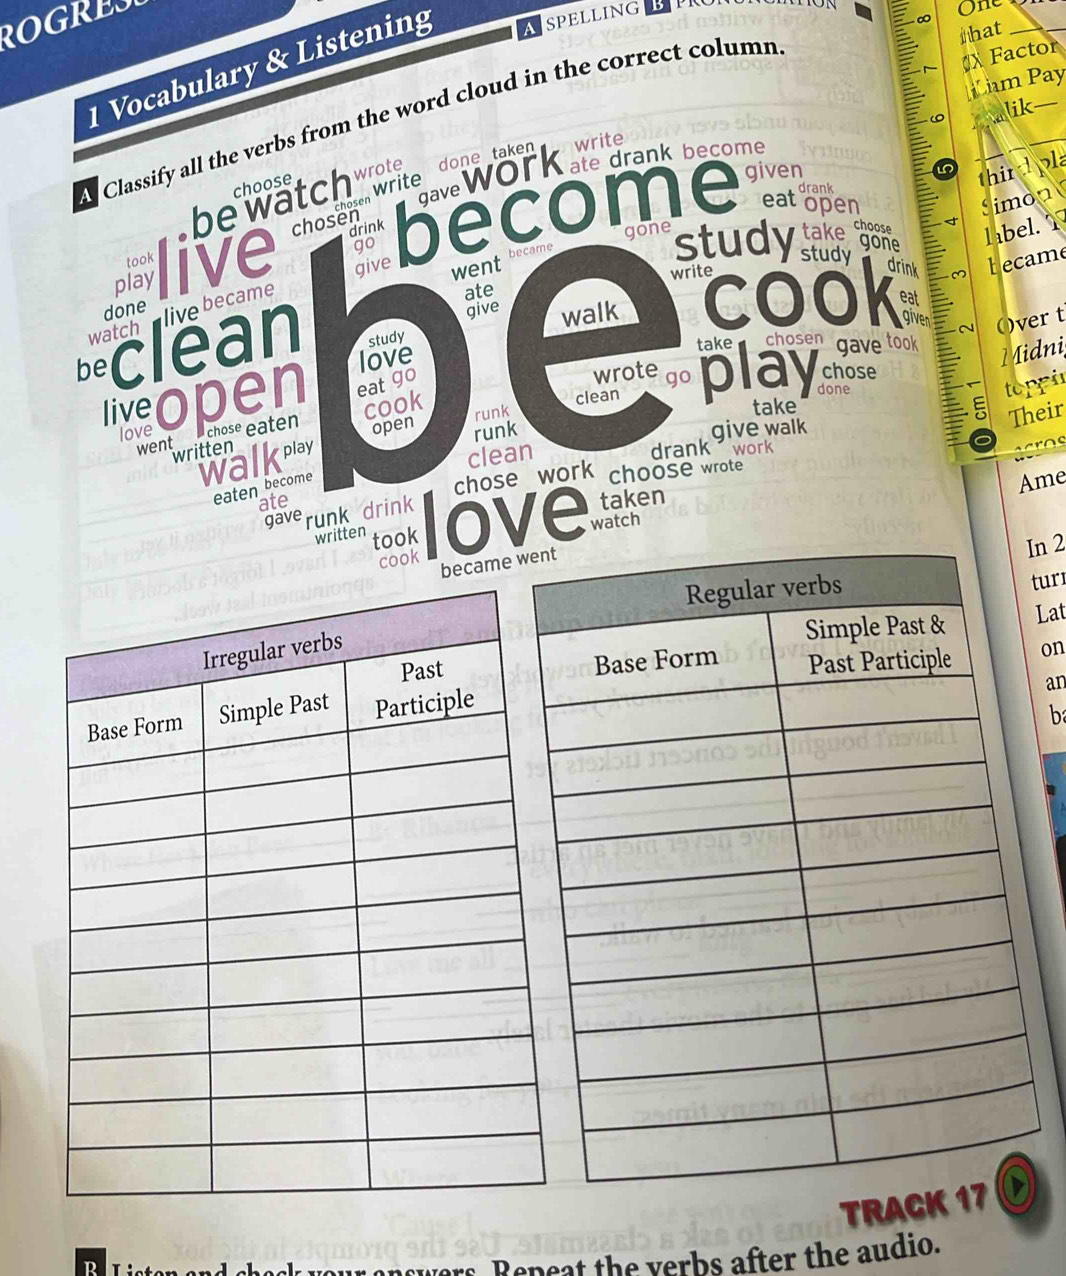 1 Vocabulary & Listening
A SPELLING B
A Classify all the verbs from the word cloud in the correct column.
choose wrote done taken write
be watch chosen write gave work ate drank become given
chosen drink become eat drank open
took live go gone take choose
play give went became study study gone
done became ate write drink
watch live give walk cook eat
be clean be given
study take chosen gave took
love wrote go play chose
live open eat go clean done
love chose eaten cook runk take
went written open runk give walk
walk play clean drank work
eaten become chose work choose wrote
ate drink love taken
gave runk watch
written took
cook became went
Irregular verbs
Base Form Simple Past Past Participle
Regular verbs
Base Form Simple Past & Past Participle
TRACK 17
B Listen and check your answers. Repeat the verbs after the audio.
0 cm 1 2 3 4 5 6 7 8
One
that
X Factor
Liam Pay
Simon
label.
became
Over t
Midni
Their
Ame
In 2
turn
Lat
on
an
ba